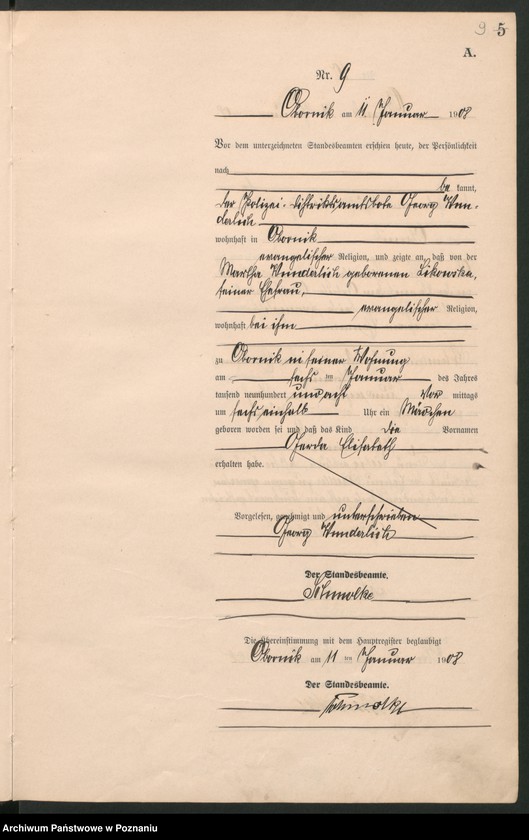 9 5
A.
Nr. 9
Obornik am 11 Januar 1908
Vor dem unterzeichneten Standesbeamten erschien heute, der Persönlichkeit
nach
be kannt,
der Polizei-Distriktsamtsbote Georg Wun-
derlich
wohnhaft in Obornik
evangelischer Religion, und zeigte an, daß von der
Martha Wunderlich geborenen
seiner Ehefrau,
evangelischer Religion,
wohnhaft bei ihm
zu Obornik in seiner Wohnung
am sechs ten Januar des Jahres
tausend neunhundert und acht Vor mittags
um sechs einhalb Uhr ein Mädchen
geboren worden sei und daß das Kind die Vornamen
Gerda Elisabeth
erhalten habe.
Vorgelesen, genehmigt und unterschrieben
Georg Wunderlich
Der Standesbeamte.
Schmolke
Die Übereinstimmung mit dem Hauptregister beglaubigt
Obornik am 11 ten Januar 1908
Der Standesbeamte.
Schmolke
Archiwum Państwowe w Poznaniu